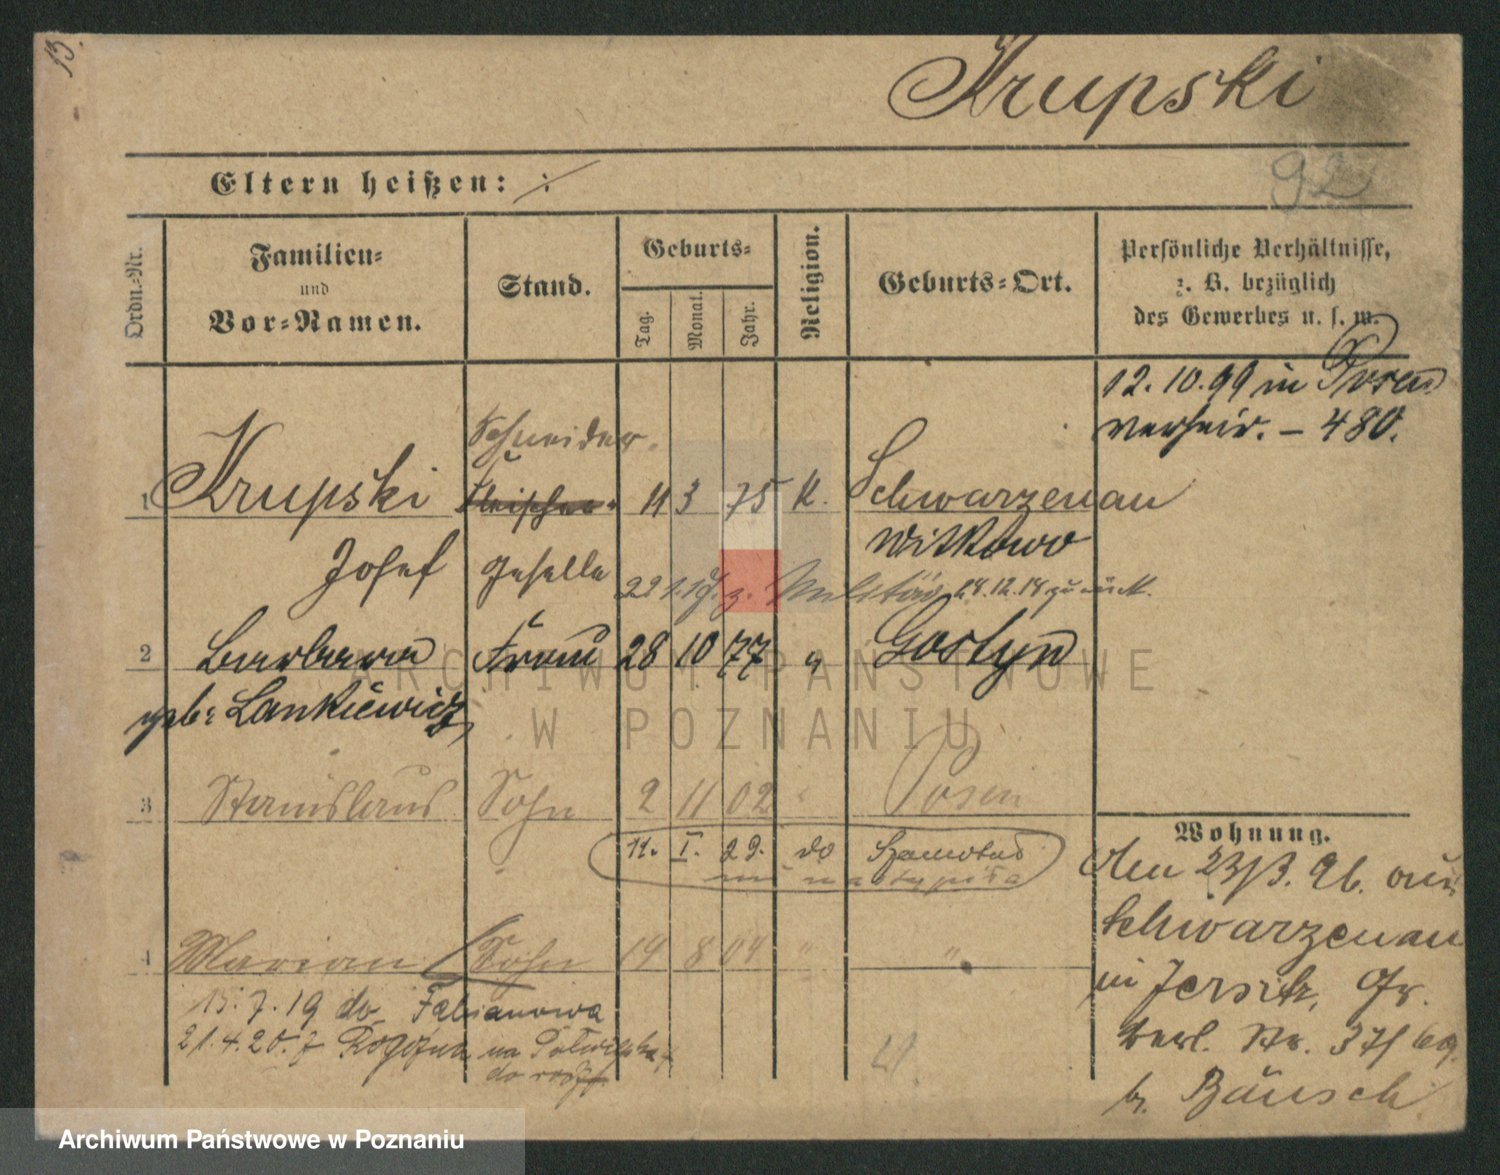 13.
Krupski
92
Eltern heißen: :
Ordn.-Nr.
Familien-
und
Vor-Namen.
Stand.
Geburts-
Tag.
Monat.
Jahr.
Religion.
Geburts-Ort.
Persönliche Verhältnisse,
z. B. bezüglich
des Gewerbes u. s. w.
12. 10. 99 in Posen
verheir. – 480.
Schneider
1 Krupski Fleischer 11 3 75 K. Schwarzenau
Witkowo
Josef geselle
z. Militär 28.12.18 zurück.
2 Barbara Frau 28 10 77 " Gostyn
geb: Lankiewicz
3 Stanislaus Sohn 2 11 02 " Posen
11. I. 29. do
4 Marian Sohn 14 8 04 " "
15. 7. 19 do Fabianowa
21. 4. 20. z na
do
Wohnung.
Am 23/3. 96. aus
Schwarzenau
in Jersitz, Gr.
Berl. Str. 37/
b. Bäusch
ARCHIWUM PAŃSTWOWE
W POZNANIU
Archiwum Państwowe w Poznaniu